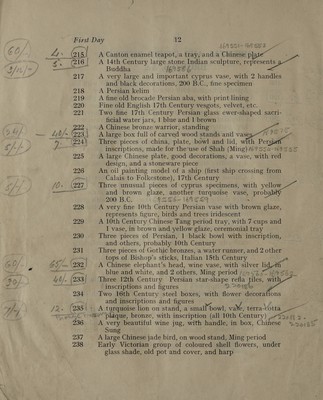 First Day 12
215 A Canton enamel teapot, a tray, and a Chinese plate
216 A 14th Century large stone Indian sculpture, represents a
Buddha
217 A very large and important cyprus vase, with 2 handles
and black decorations, 200 B.C., fine specimen
218 A Persian kelim
219 A fine old brocade Persian aba, with print lining
220 Fine old English 17th Century vesgots, velvet, etc.
221 Two fine 17th Century Persian glass ewer-shaped sacri-
ficial water jars, 1 blue and 1 brown
222 A Chinese bronze warrior, standing
223 A large box full of carved wood stands and vases
224 Three pieces of china, plate, bowl and lid, with Persian
inscriptions, made for the use of Shah (Ming)
225 A large Chinese plate, good decorations, a vase, with red
design, and a stoneware piece
226 An oil painting model of a ship (first ship crossing from
Calais to Folkestone), 17th Century
227 Three unusual pieces of cyprus specimens, with yellow
and brown glaze, another turquoise vase, probably
200 B.C.
228 A very fine 10th Century Persian vase with brown glaze,
represents figure, birds and trees iridescent
229 A 10th Century Chinese Tang period tray, with 7 cups and
1 vase, in brown and yellow glaze, ceremonial tray
230 Three pieces of Persian, 1 black bowl with inscription,
and others, probably 10th Century
231 Three pieces of Gothic bronzes, a water runner, and 2 other
tops of Bishop's sticks, Italian 15th Century
232 A Chinese elephant's head, wine vase, with silver lid, in
blue and white, and 2 others, Ming period
233 Three 12th Century Persian star-shape refla files, with
inscriptions and figures
234 Two 16th Century steel boxes, with flower decorations
and inscriptions and figures
235 A turquoise lion on stand, a small bowl, vase, terra-cotta
plaque, beonze, with inscription (all 10th Century)
236 A very beautiful wine jug, with handle, in box, Chinese
Sung
237 A large Chinese jade bird, on wood stand, Ming period
238 Early Victorian group of coloured shell flowers, under
glass shade, old pot and cover, and harp